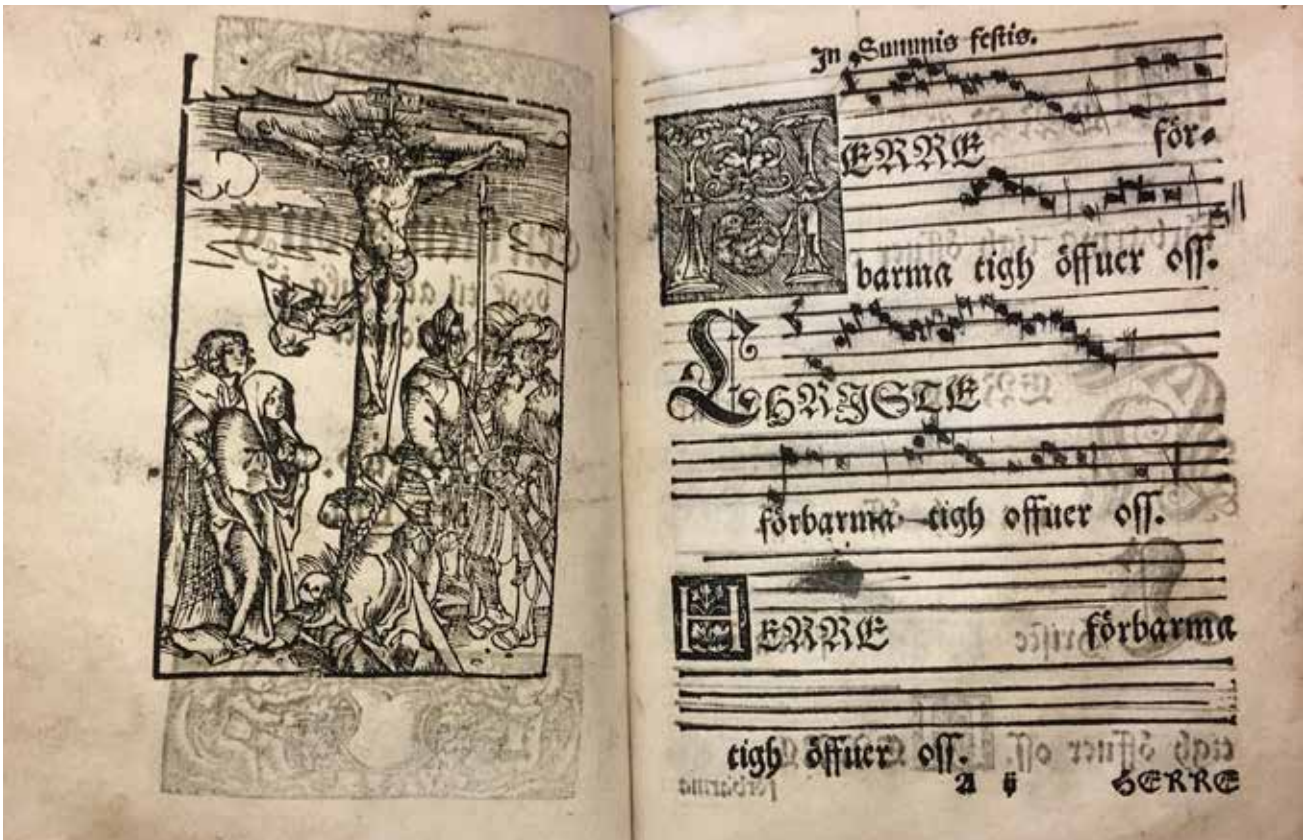 In Summis festis.
HERRE för-
barma tigh öffuer oss.
CHRISTE
förbarma tigh offuer oss.
HERRE förbarma
tigh öffuer oss.
A ij HERRE